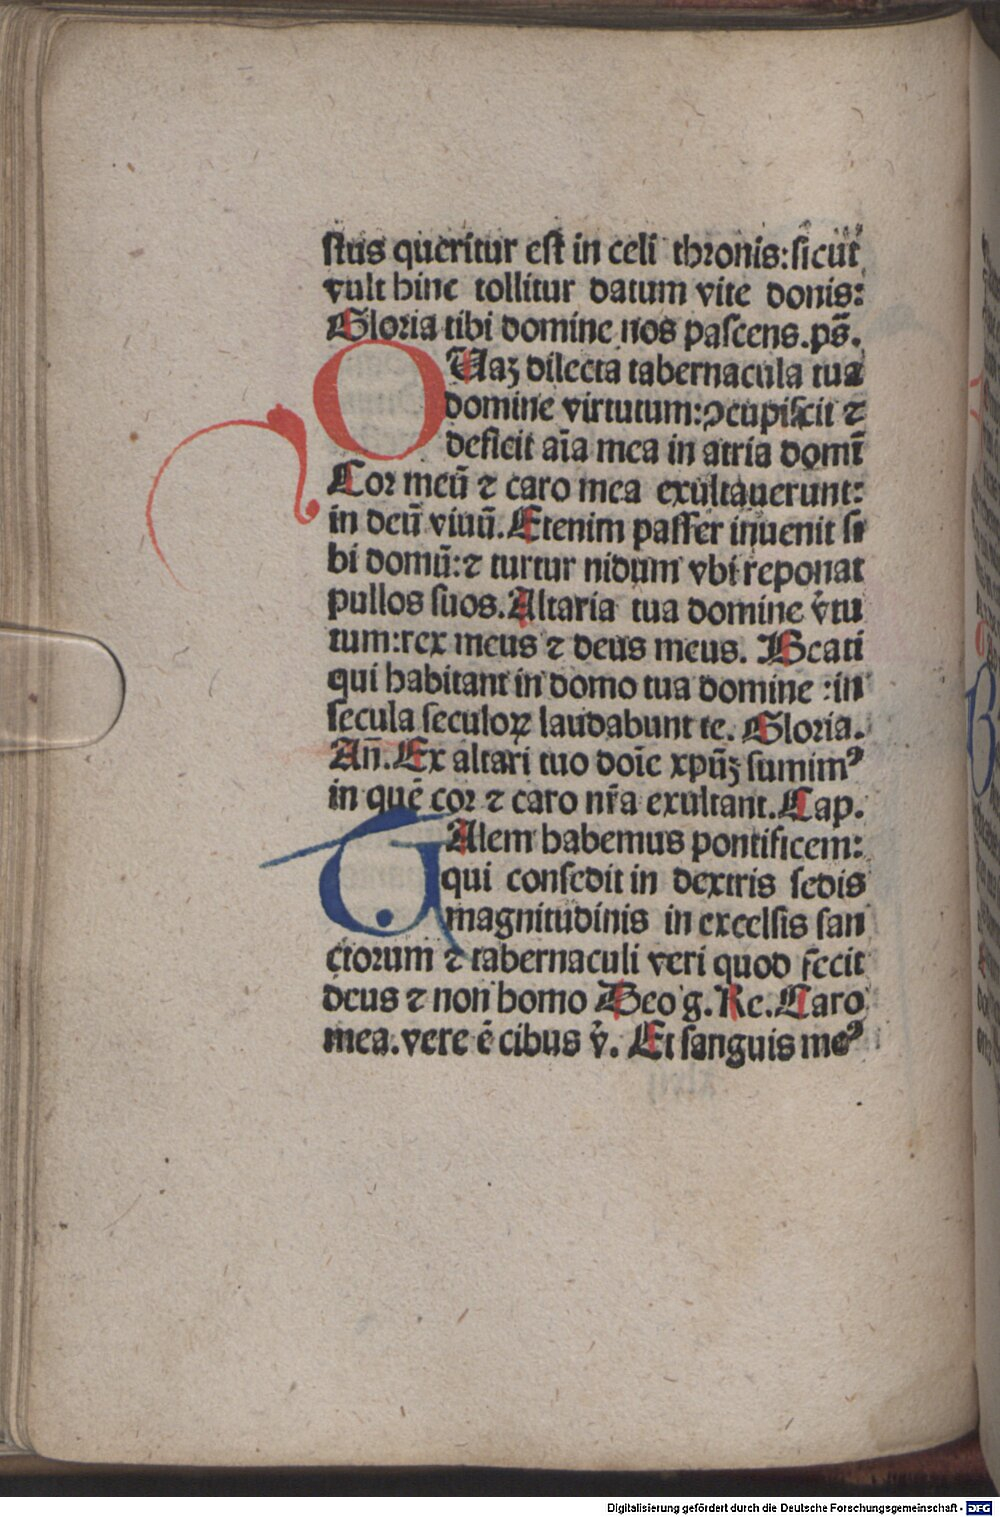 ſtus queritur eſt in celi thronis:ſicut
vult hinc tollitur datum vite donis:
Gloria tibi domine nos paſcens.ps̄.
QUaꝫ dilecta tabernacula tua
domine virtutum:ↄcupiſcit ⁊
deficit aīa mea in atria domī
Cor meū ⁊ caro mea exultauerunt:
in deū viuū.Etenim paſſer inuenit ſi
bi domū:⁊ turtur nidum vbi reponat
pullos ſuos.Altaria tua domine v̓tu
tum:rex meus ⁊ deus meus. Beati
qui habitant in domo tua domine :in
ſecula ſeculoꝝ laudabunt te. Gloria.
An̄.Ex altari tuo doīe xpūꝫ ſumimꝰ
in quē cor ⁊ caro nr̄a exultant.Cap.
TAlem habemus pontificem:
qui conſedit in dextris ſedis
magnitudinis in excelſis ſan
ctorum ⁊ tabernaculi veri quod fecit
deus ⁊ non homo Deo g. Re.Caro
mea.vere ē cibus v̓. Et ſanguis meꝰ
Digitalisierung gefördert durch die Deutsche Forschungsgemeinschaft - DFG